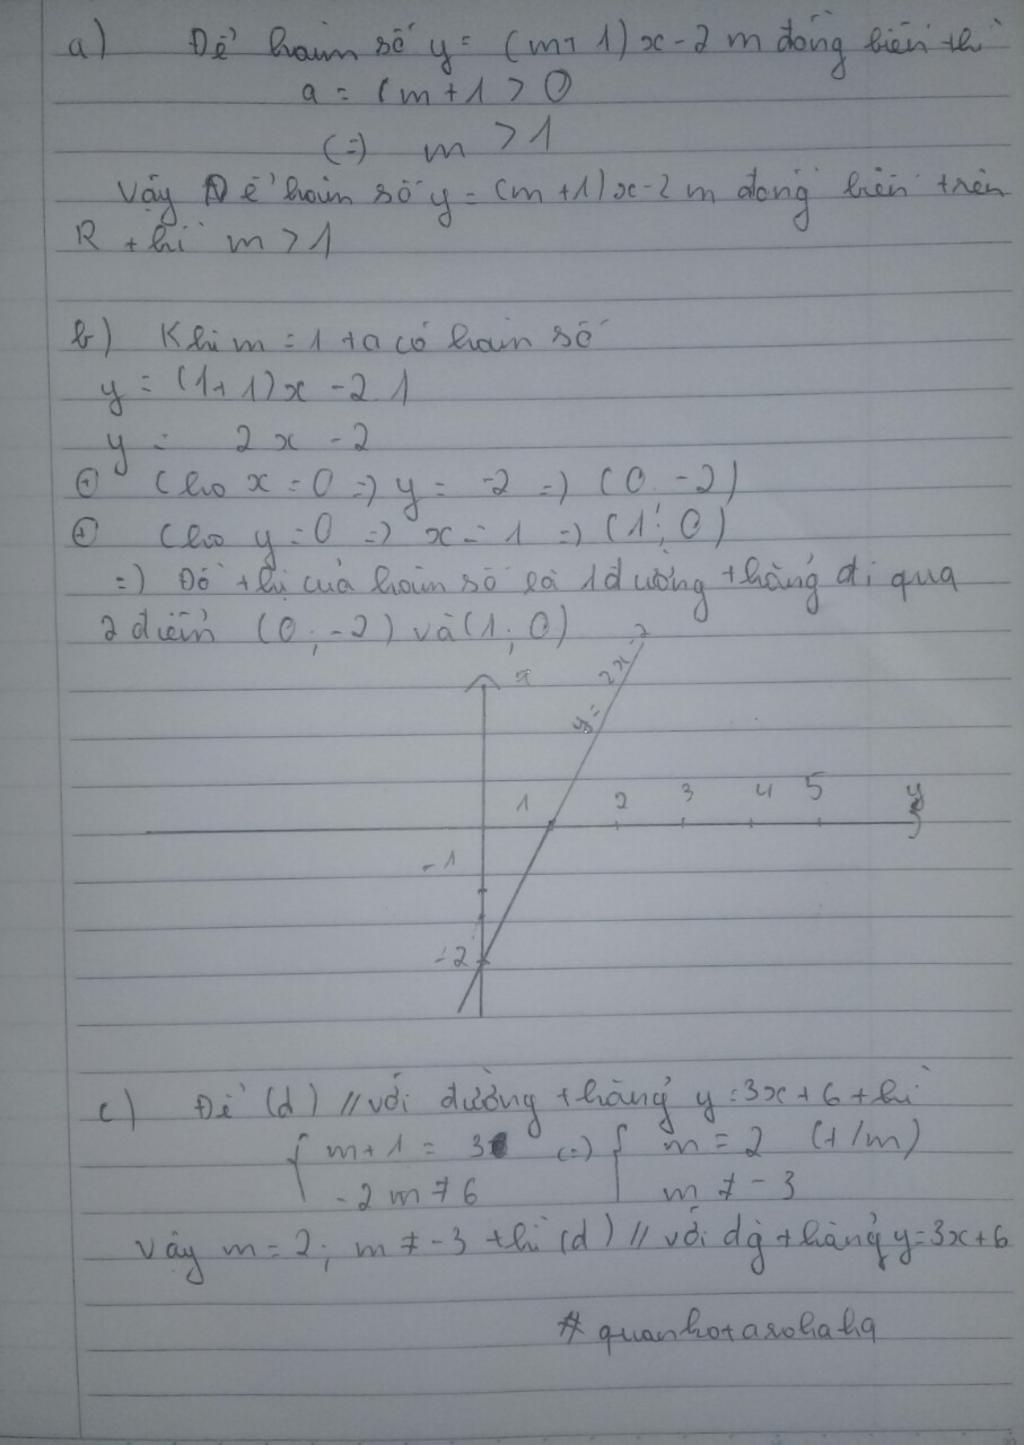 a) Để hàm số y = (m+1)x-2m đồng biến thì
a = (m+1 > 0
(=) m > 1
Vậy Để hàm số y = (m+1)x-2m đồng biến trên
R thì m > 1
b) Khi m = 1 ta có hàm số
y = (1+1)x - 2.1
y = 2x - 2
⊕ Cho x = 0 => y = -2 => (0. -2)
⊕ Cho y = 0 => x = 1 => (1; 0)
=) Đồ thị của hàm số là 1 đường thẳng đi qua
2 điểm (0; -2) và (1; 0)
x
y = 2x - 2
1 2 3 4 5 y
-1
-2
c) Để (d) // với đường thẳng y = 3x + 6 thì
{ m + 1 = 3 (=) { m = 2 (t/m)
-2m ≠ 6 m ≠ -3
Vậy m = 2; m ≠ -3 thì (d) // với đg thẳng y = 3x + 6
# quanhotarohahq